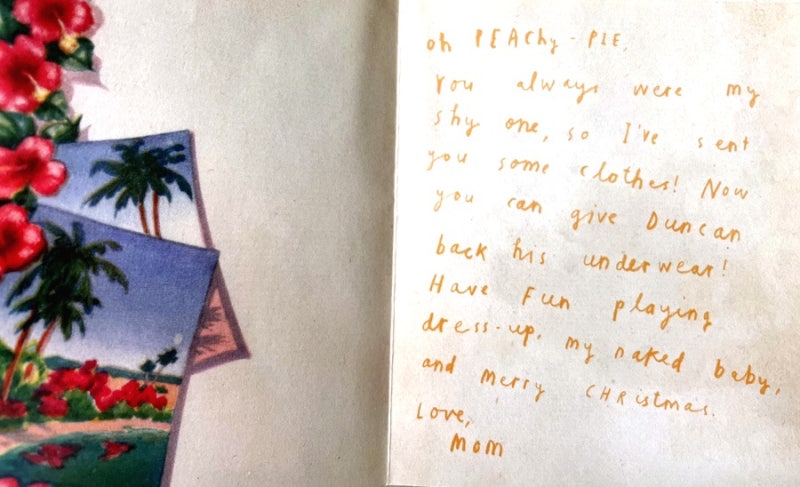 oh PEAchy-PIE,
You always were my
shy one, so I've sent
you some clothes! Now
you can give Duncan
back his underwear!
Have Fun playing
dress-up, my naked baby,
and merry CHRistmas.
Love,
Mom